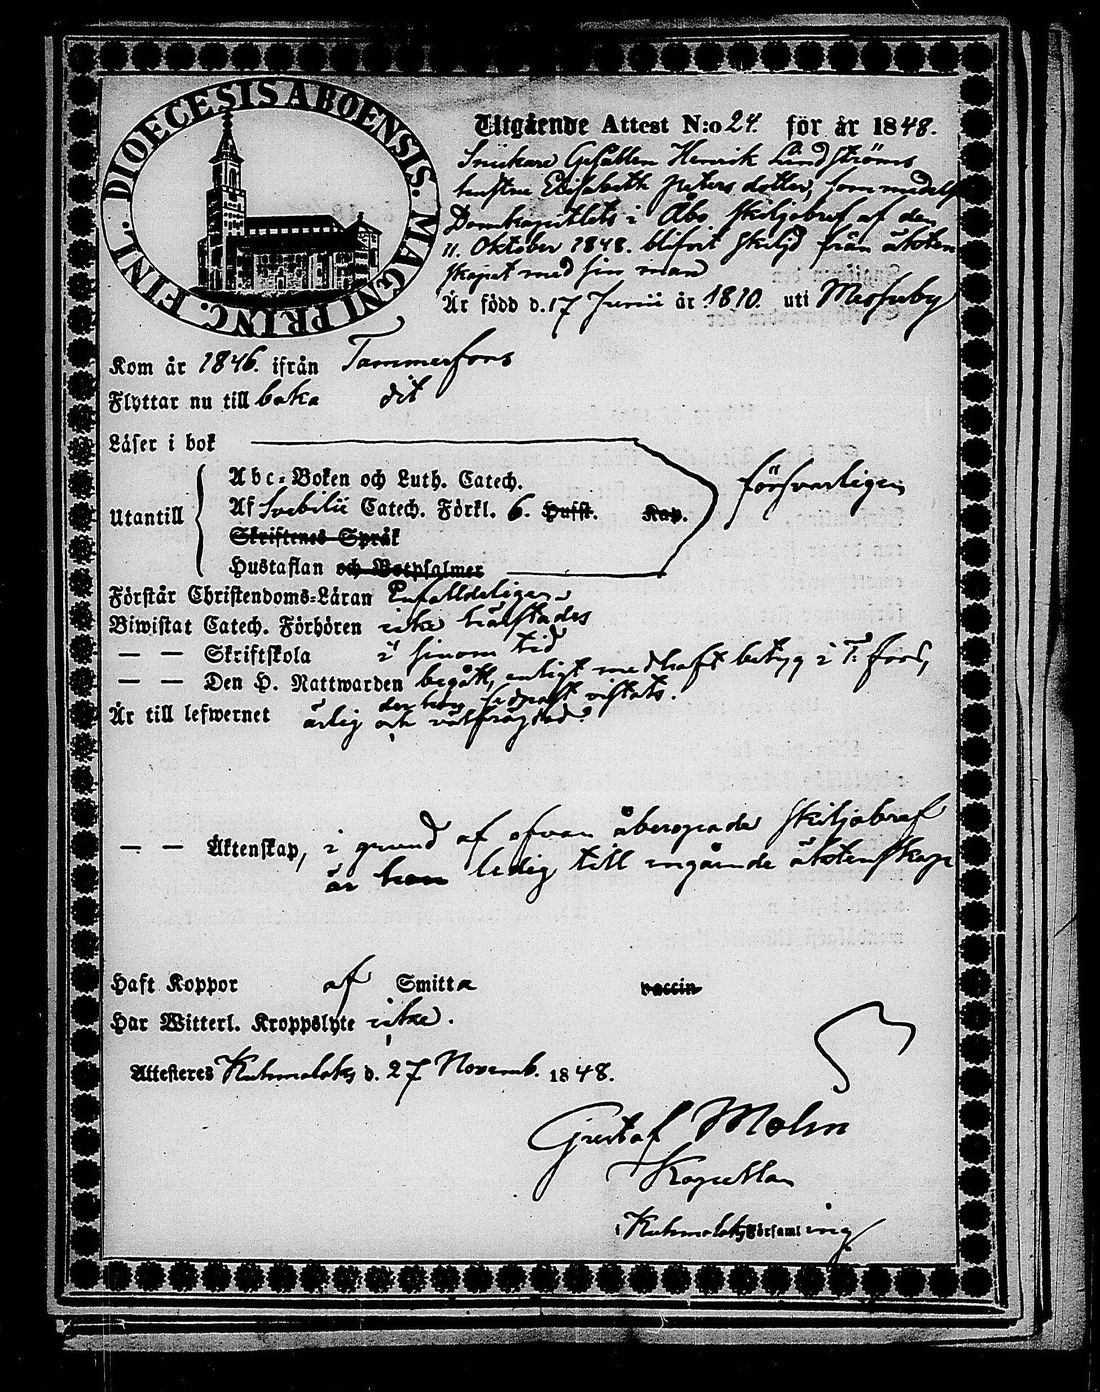 DIOECESIS ABOENSIS. MAGNI PRINC. FINL.
Utgående Attest N:o 24. för år 1848.
Snickare Gesällen Henrik Lindströms
hustru Elisabeth Petersdotter, som medelst
Domkapitlets i Åbo skiljobref af den
11. Oktober 1848. blifvit skiljd från äkten
skapet med sin man
Är född d. 17 Junii år 1810. uti Messuby
Kom år 1846. ifrån Tammerfors
Flyttar nu till baka dit
Läser i bok
Abc-Boken och Luth. Catech.
försvarligen
Utantill
Af Svebilii Catech. Förkl. 6. Hufst. Kap.
Skriftenes Språk
Hustaflan och Botpsalmer
Förstår Christendoms-Läran Enfalldeligen
Biwistat Catech. Förhören icke härstädes
— — Skriftskola i sinom tid
— — Den H. Nattwarden begått, enligt medhaft betyg i T. fors,
der hon sednast vistats.
Är till lefwernet ärlig och välfrägdad.
— — Äktenskap, i grund af ofvan åberopade skiljobref
är hon ledig till ingående äktenskap
Haft Koppor af Smitta vaccin
Har Witterl. Kroppslyte icke.
Attesteres Kuhmalaks d. 27 Novemb. 1848.
Gustaf Molin
Kapellan
i Kuhmalaks Församling